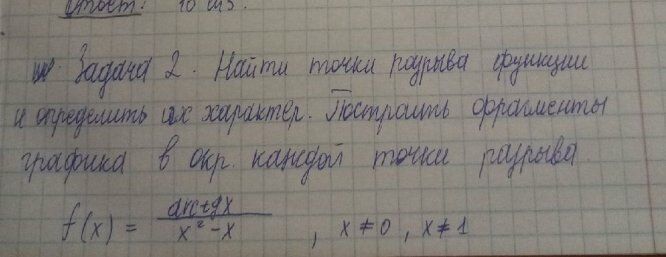 Ответ: 10 см3.
Задача 2. Найти точки разрыва функции
и определить их характер. Построить фрагменты
графика в окр. каждой точки разрыва.
f(x) = arctgx / x² - x , x ≠ 0 , x ≠ 1